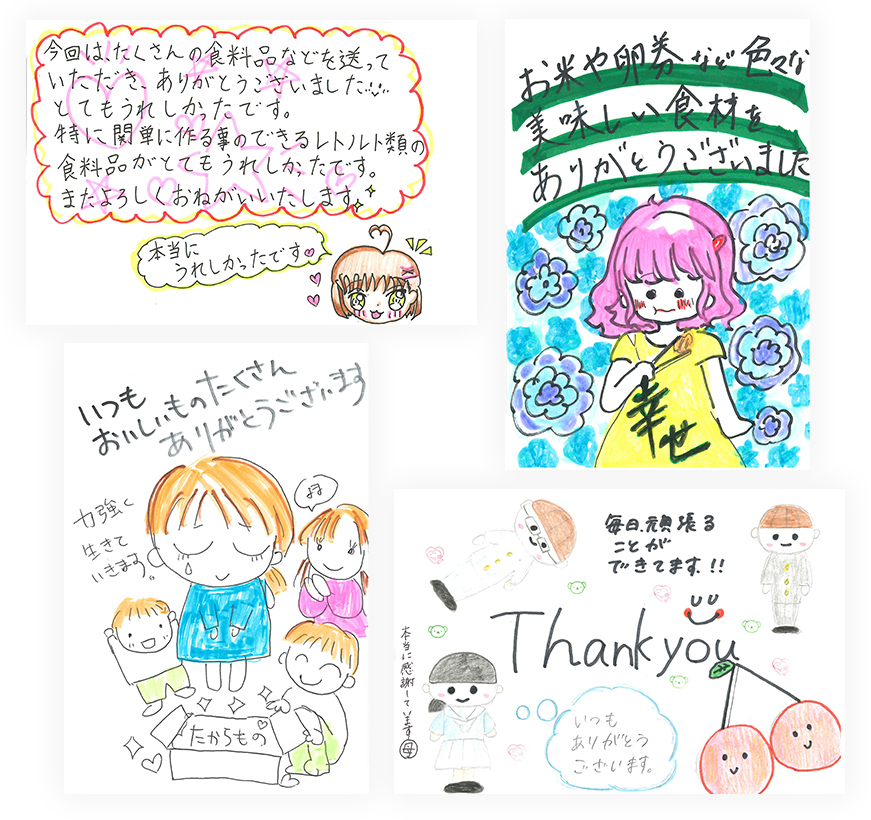 今回は、たくさんの食料品などを送って
いただき、ありがとうございました
とてもうれしかったです。
特に関単に作る事のできるレトルト類の
食料品がとてもうれしかったです。
またよろしくおねがいいたします。
本当に
うれしかったです
お米や卵券など色々な
美味しい食材を
ありがとうございました
幸せ
いつも
おいしいものたくさん
ありがとうございます
力強く
生きて
いきまする。
たからもの
毎日、頑張る
ことが
できてます!!
Thank you
本当に感謝しています 母
いつも
ありがとう
ございます。